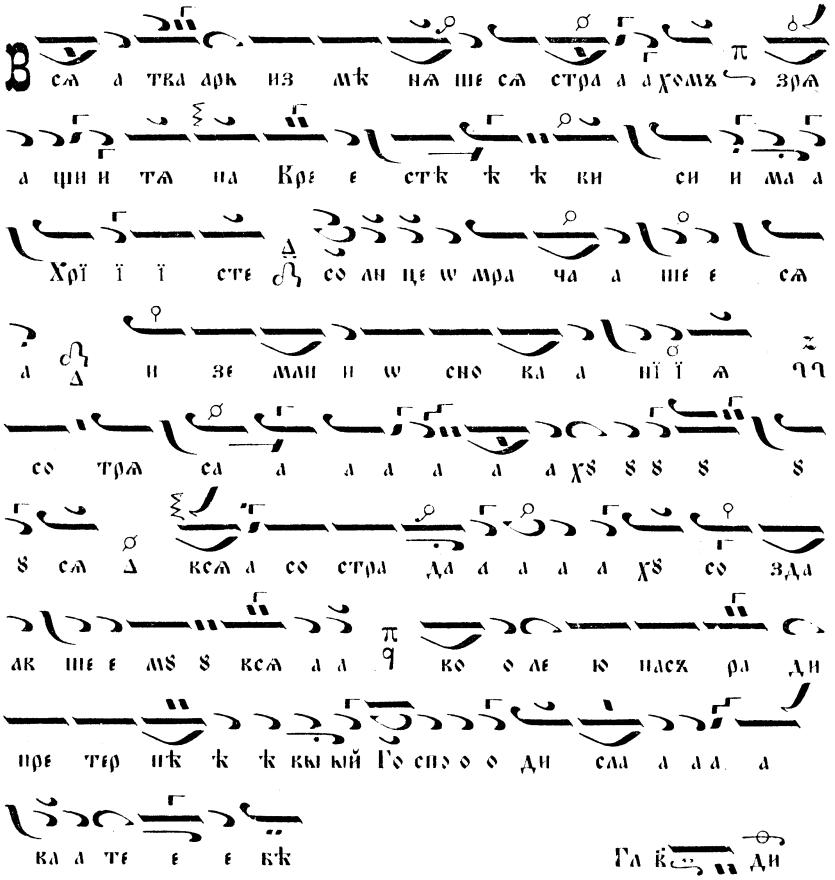 Всѧ а тва арь из мѣ нѧ ше сѧ стра а а хомъ π зрѧ
а щи и тѧ на Кре е стѣ ѣ ѣ ви си и ма а
Хрї ї ї сте Δ со лн це ѡ мра ча а ше е сѧ
а Δ и зе мли и ѡ сно ва а нї ї ѧ
со трѧ са а а а а а а хꙋ ꙋ ꙋ ꙋ ꙋ
ꙋ сѧ Δ всѧ а со стра да а а а а хꙋ со зда
ав ше е мꙋ ꙋ всѧ а а π ко о ле ю насъ ра ди
пре тер пѣ ѣ ѣ вы ый Го спо о о ди сла а а а а
ва а те е е бѣ Гл в҃ ди